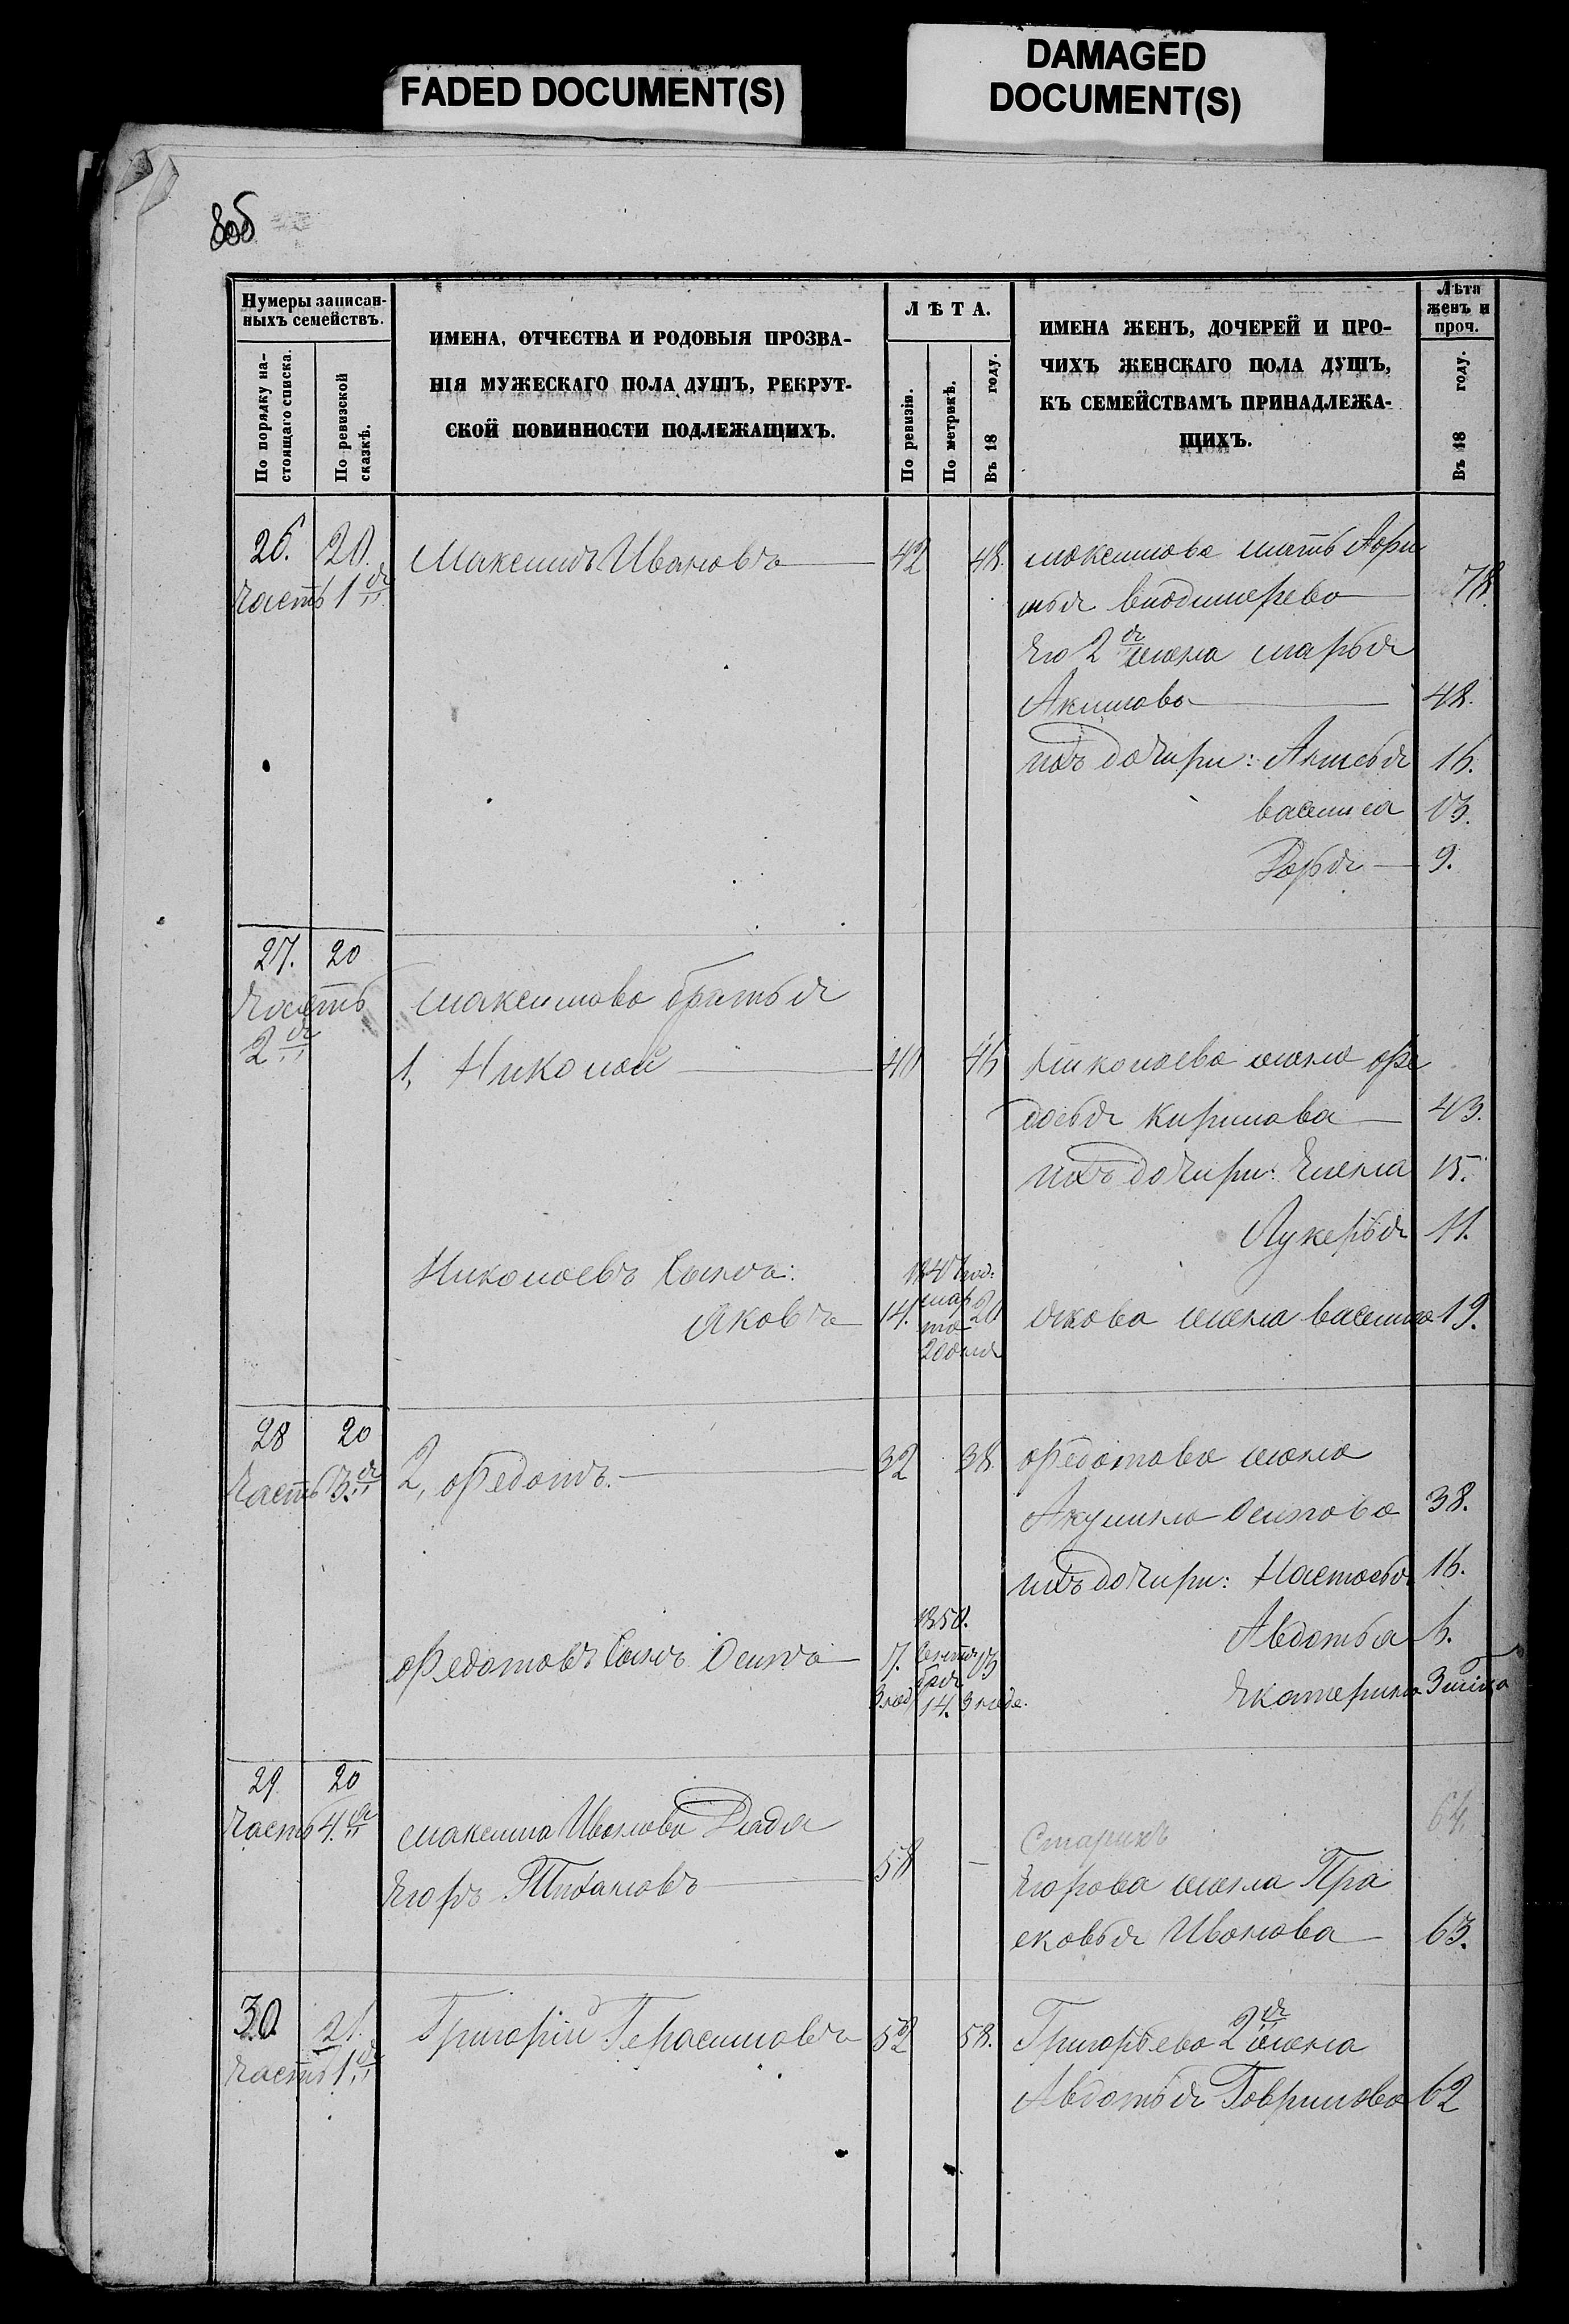 FADED DOCUMENT(S)
DAMAGED
DOCUMENT(S)
Нумеры записан-
ныхъ семействъ.
По порядку на-
стоящаго списка.
По ревизской
сказкѣ.
ИМЕНА, ОТЧЕСТВА И РОДОВЫЯ ПРОЗВА-
НІЯ МУЖЕСКАГО ПОЛА ДУШЪ, РЕКРУТ-
СКОЙ ПОВИННОСТИ ПОДЛЕЖАЩИХЪ.
ЛѢТА.
По ревизіи.
По метрикѣ.
Въ 18 году.
ИМЕНА ЖЕНЪ, ДОЧЕРЕЙ И ПРО-
ЧИХЪ ЖЕНСКАГО ПОЛА ДУШЪ,
КЪ СЕМЕЙСТВАМЪ ПРИНАДЛЕЖА-
ЩИХЪ.
Лѣта
женъ и
проч.
Въ 18 году.
26. 20. Максимъ Ивановъ 42 48. максимова мать
часть 1я 78.
Его 2я жена марья
Акимова 48.
ихъ дочири: Аксинья 16.
василиса 13.
Дарья 9.
27. 20
часть максимова братья
2я
1, Николай 40 46 Николаева жена фе
досья Кирилова 43.
ихъ дочири: Елена 15.
Лукерья 11.
Николаевъ Сынъ: 1847 год:
Яковъ 14. мар 20 якова жена василиса 19.
та
20 дня
28 20
часть 3я 2, федотъ. 32 38. федотова жена
Акулина Осипова 38.
ихъ дочири: Настасья 16.
1850. Авдотья 6.
федотовъ Сынъ Осипъ 7. Сентя 13
бря Екатерина
14.
29 20
часть 4я максима Иванова Дядя Старикъ 64
Егоръ Титановъ 58 — Егорова жена Пра
сковья Иванова 63.
30. 21. Григорій Герасимовъ 52 58. Григорьева 2я жена
часть 1я
Авдотья Гаврилова 62